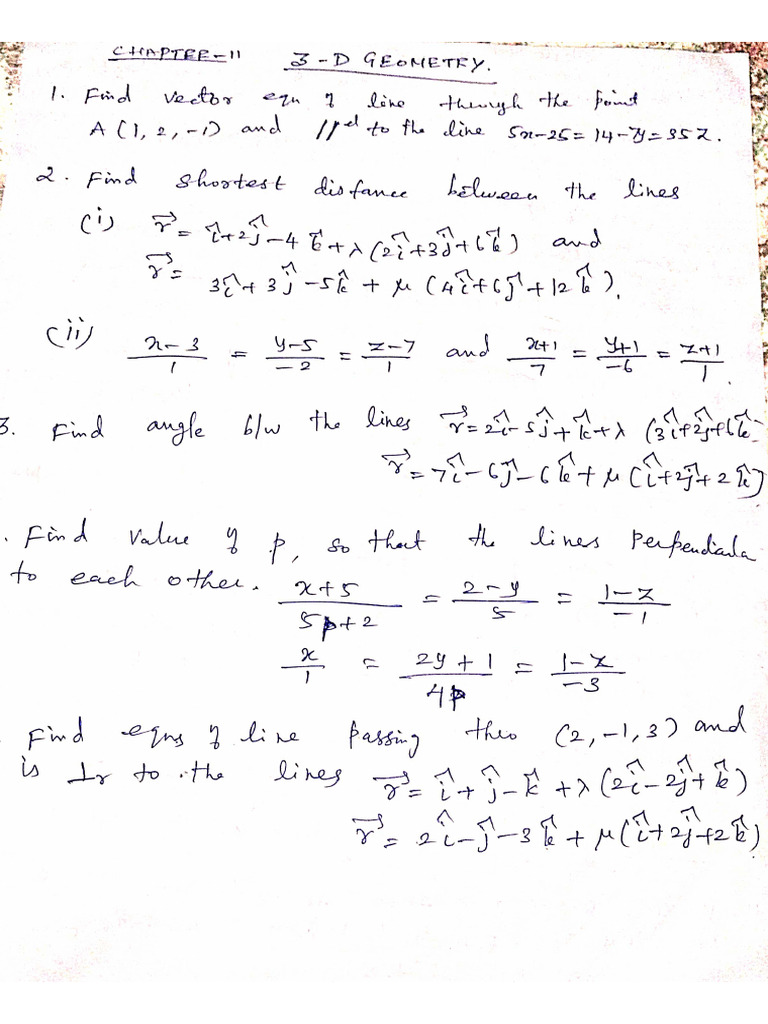 CHAPTER-11 3-D GEOMETRY.
1. Find vector eqn of line through the point
A (1, 2, -1) and ||el to the line 5x-25 = 14-7y = 35z.
2. Find shortest distance between the lines
(i) r⃗ = î+2ĵ-4k̂+λ(2î+3ĵ+6k̂) and
r⃗ = 3î+3ĵ-5k̂+μ(4î+6ĵ+12k̂).
(ii) (x-3)/1 = (y-5)/-2 = (z-7)/1 and (x+1)/7 = (y+1)/-6 = (z+1)/1.
3. Find angle b/w the lines r⃗=2î-5ĵ+k̂+λ(3î+2ĵ+6k̂
r⃗=7î-6ĵ-6k̂+μ(î+2ĵ+2k̂)
. Find value of p, so that the lines perpendicula
to each other. (x+5)/(5p+2) = (2-y)/5 = (1-z)/-1
x/1 = (2y+1)/4p = (1-z)/-3
. Find eqns of line passing thro (2,-1,3) and
is ⊥r to the lines r⃗=î+ĵ-k̂+λ(2î-2ĵ+k̂)
r⃗=2î-ĵ-3k̂+μ(î+2ĵ+2k̂)